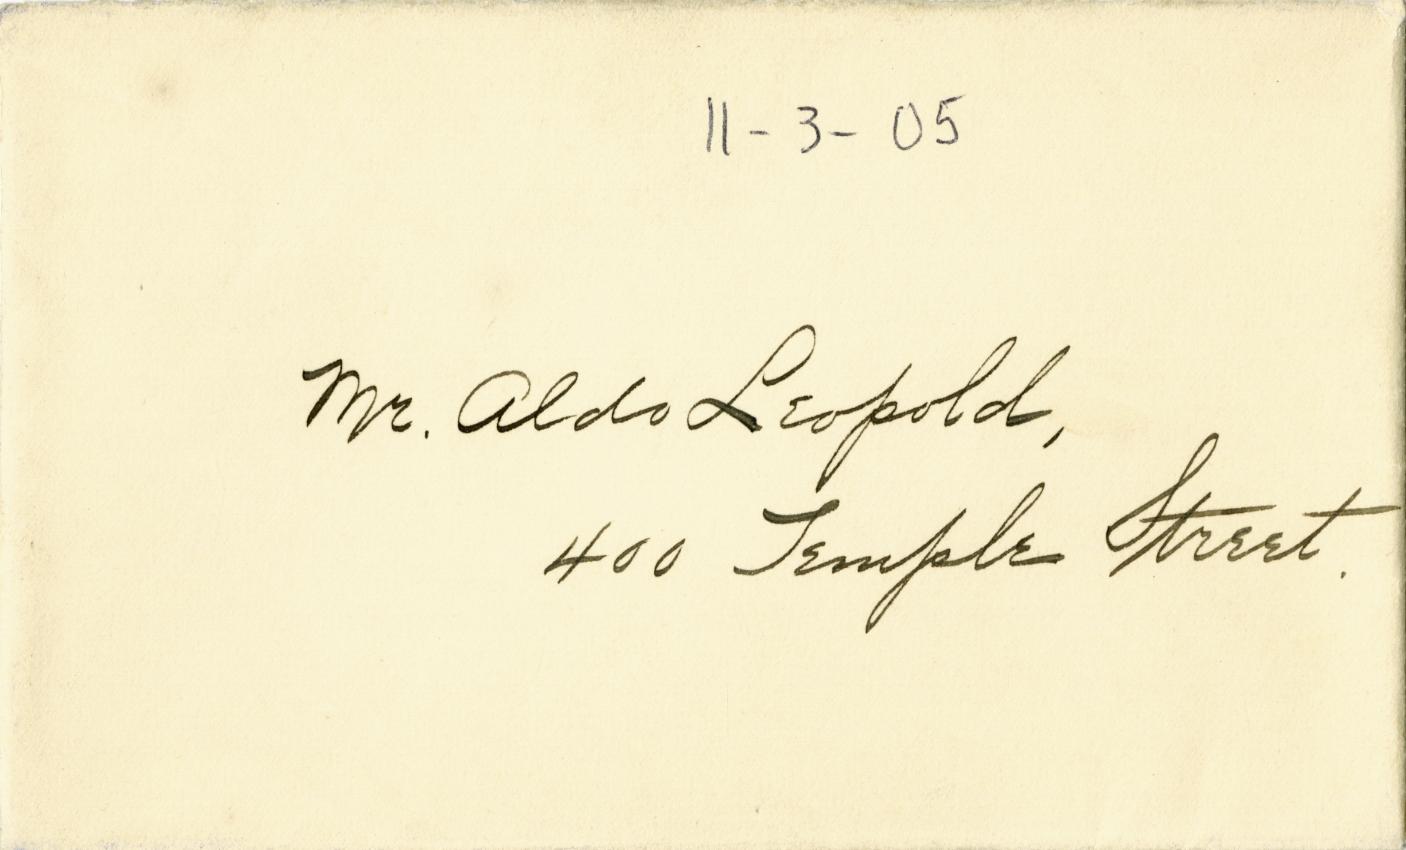 11-3-05
Mr. Aldo Leopold,
400 Temple Street.